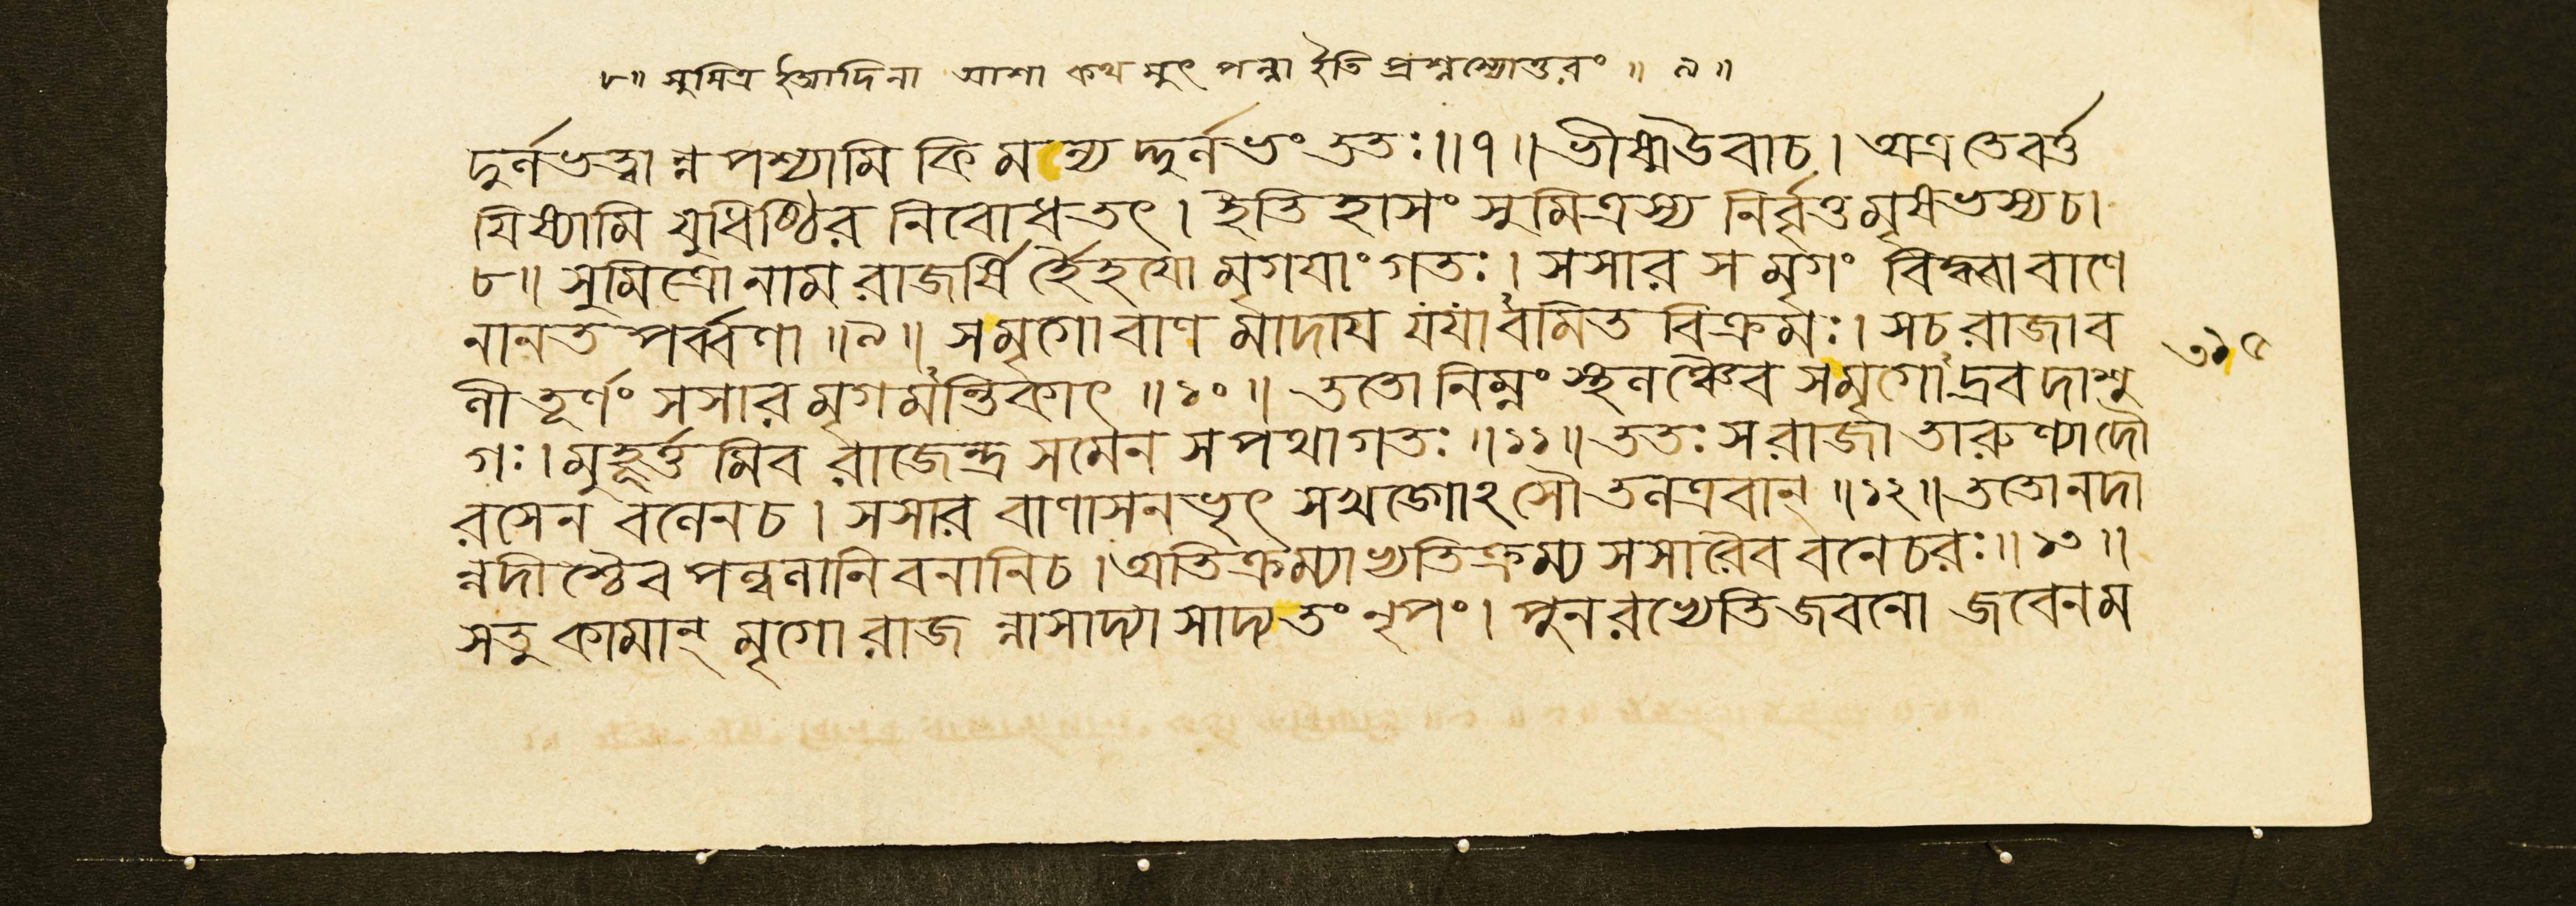 ৮॥ সুমিত্র ইআদিনা আশা কথ মুৎ পন্না ইতি প্রশ্নস্যোত্তরং ॥ ৯ ॥
দুর্লভত্বা ন্ন পশ্যামি কি মন্য দ্দুর্লভং ততঃ॥৭॥ভীষ্মউবাচ। অত্র তে বর্ত্ত
যিষ্যামি যুধিষ্ঠির নিবোধ তৎ। ইতি হাসং সুমিত্রস্য নির্বৃত্ত মৃষভস্য চ।
৮॥ সুমিত্রো নাম রাজর্ষি র্হৈহযো মৃগযাং গতঃ। সসার স মৃগং বিদ্ধ্বা বাণে
নানত পর্ব্বণা ॥৯॥ সমৃগো বাণ মাদায যযাবমিত বিক্রমঃ। সচ রাজা ব
লী তূর্ণং সসার মৃগমন্তিকাৎ ॥১০॥ ততো নিম্নং স্থলঞ্চৈব সমৃগো দ্রবদাশু
গঃ। মুহূর্ত্ত মিব রাজেন্দ্র সমেন স পথা গতঃ ॥১১॥ ততঃ স রাজা তারুণ্যাদৌ
রসেন বলেন চ। সসার বাণাসনভৃৎ সখড়্গোঽসৌ তনত্রবান্ ॥১২॥ ততোনদা
ন্নদীশ্চৈব পল্বলানি বনানি চ। অতিক্রম্যাভ্যতিক্রম্য সসারৈব বনেচরঃ॥১৩॥
সতু কামান্ মৃগো রাজ ন্নাসাদ্যা সাদ্য তং নৃপং। পুনরভ্যেতি জবনো জবেন ম
৩১৫